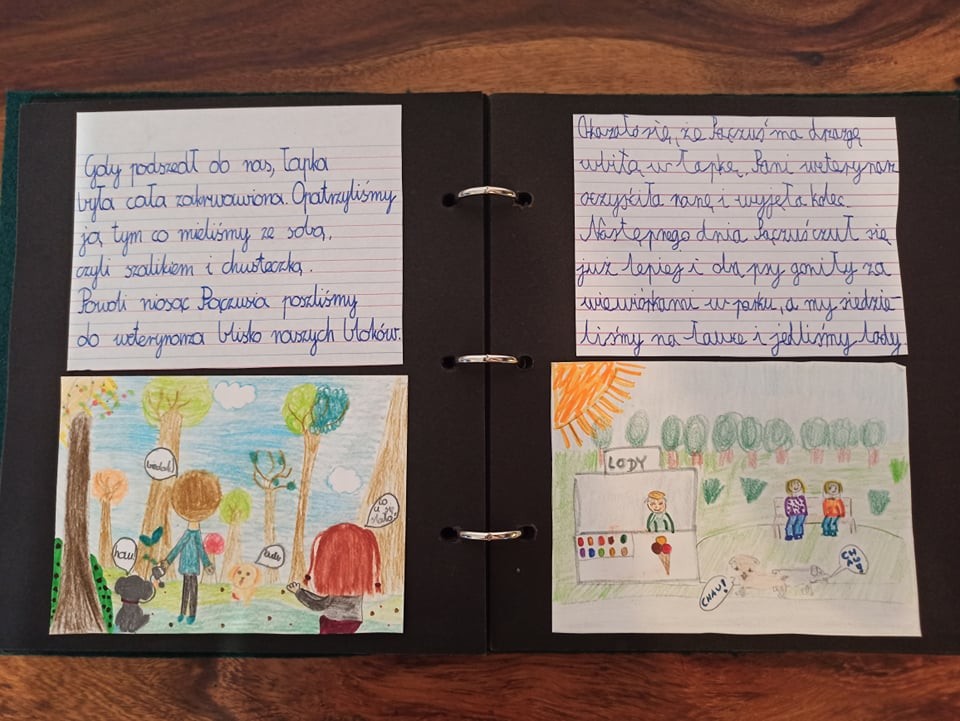 Gdy podszedł do nas, łapka
była cała zakrwawiona. Opatrzyliśmy
ją tym co mieliśmy ze sobą,
czyli szalikiem i chusteczką.
Powoli niosąc Pączusia poszliśmy
do weterynarza blisko naszych bloków.
hau
Okazało się, że Pączuś ma drzazgę
wbitą w łapkę. Pani weterynarz
oczyściła ranę i wyjęła kolec.
Następnego dnia Pączuś czuł się
już lepiej i oba psy goniły za
wiewiórkami w parku, a my siedzie-
liśmy na ławce i jedliśmy lody
LODY
CHAU!
CH
AU!